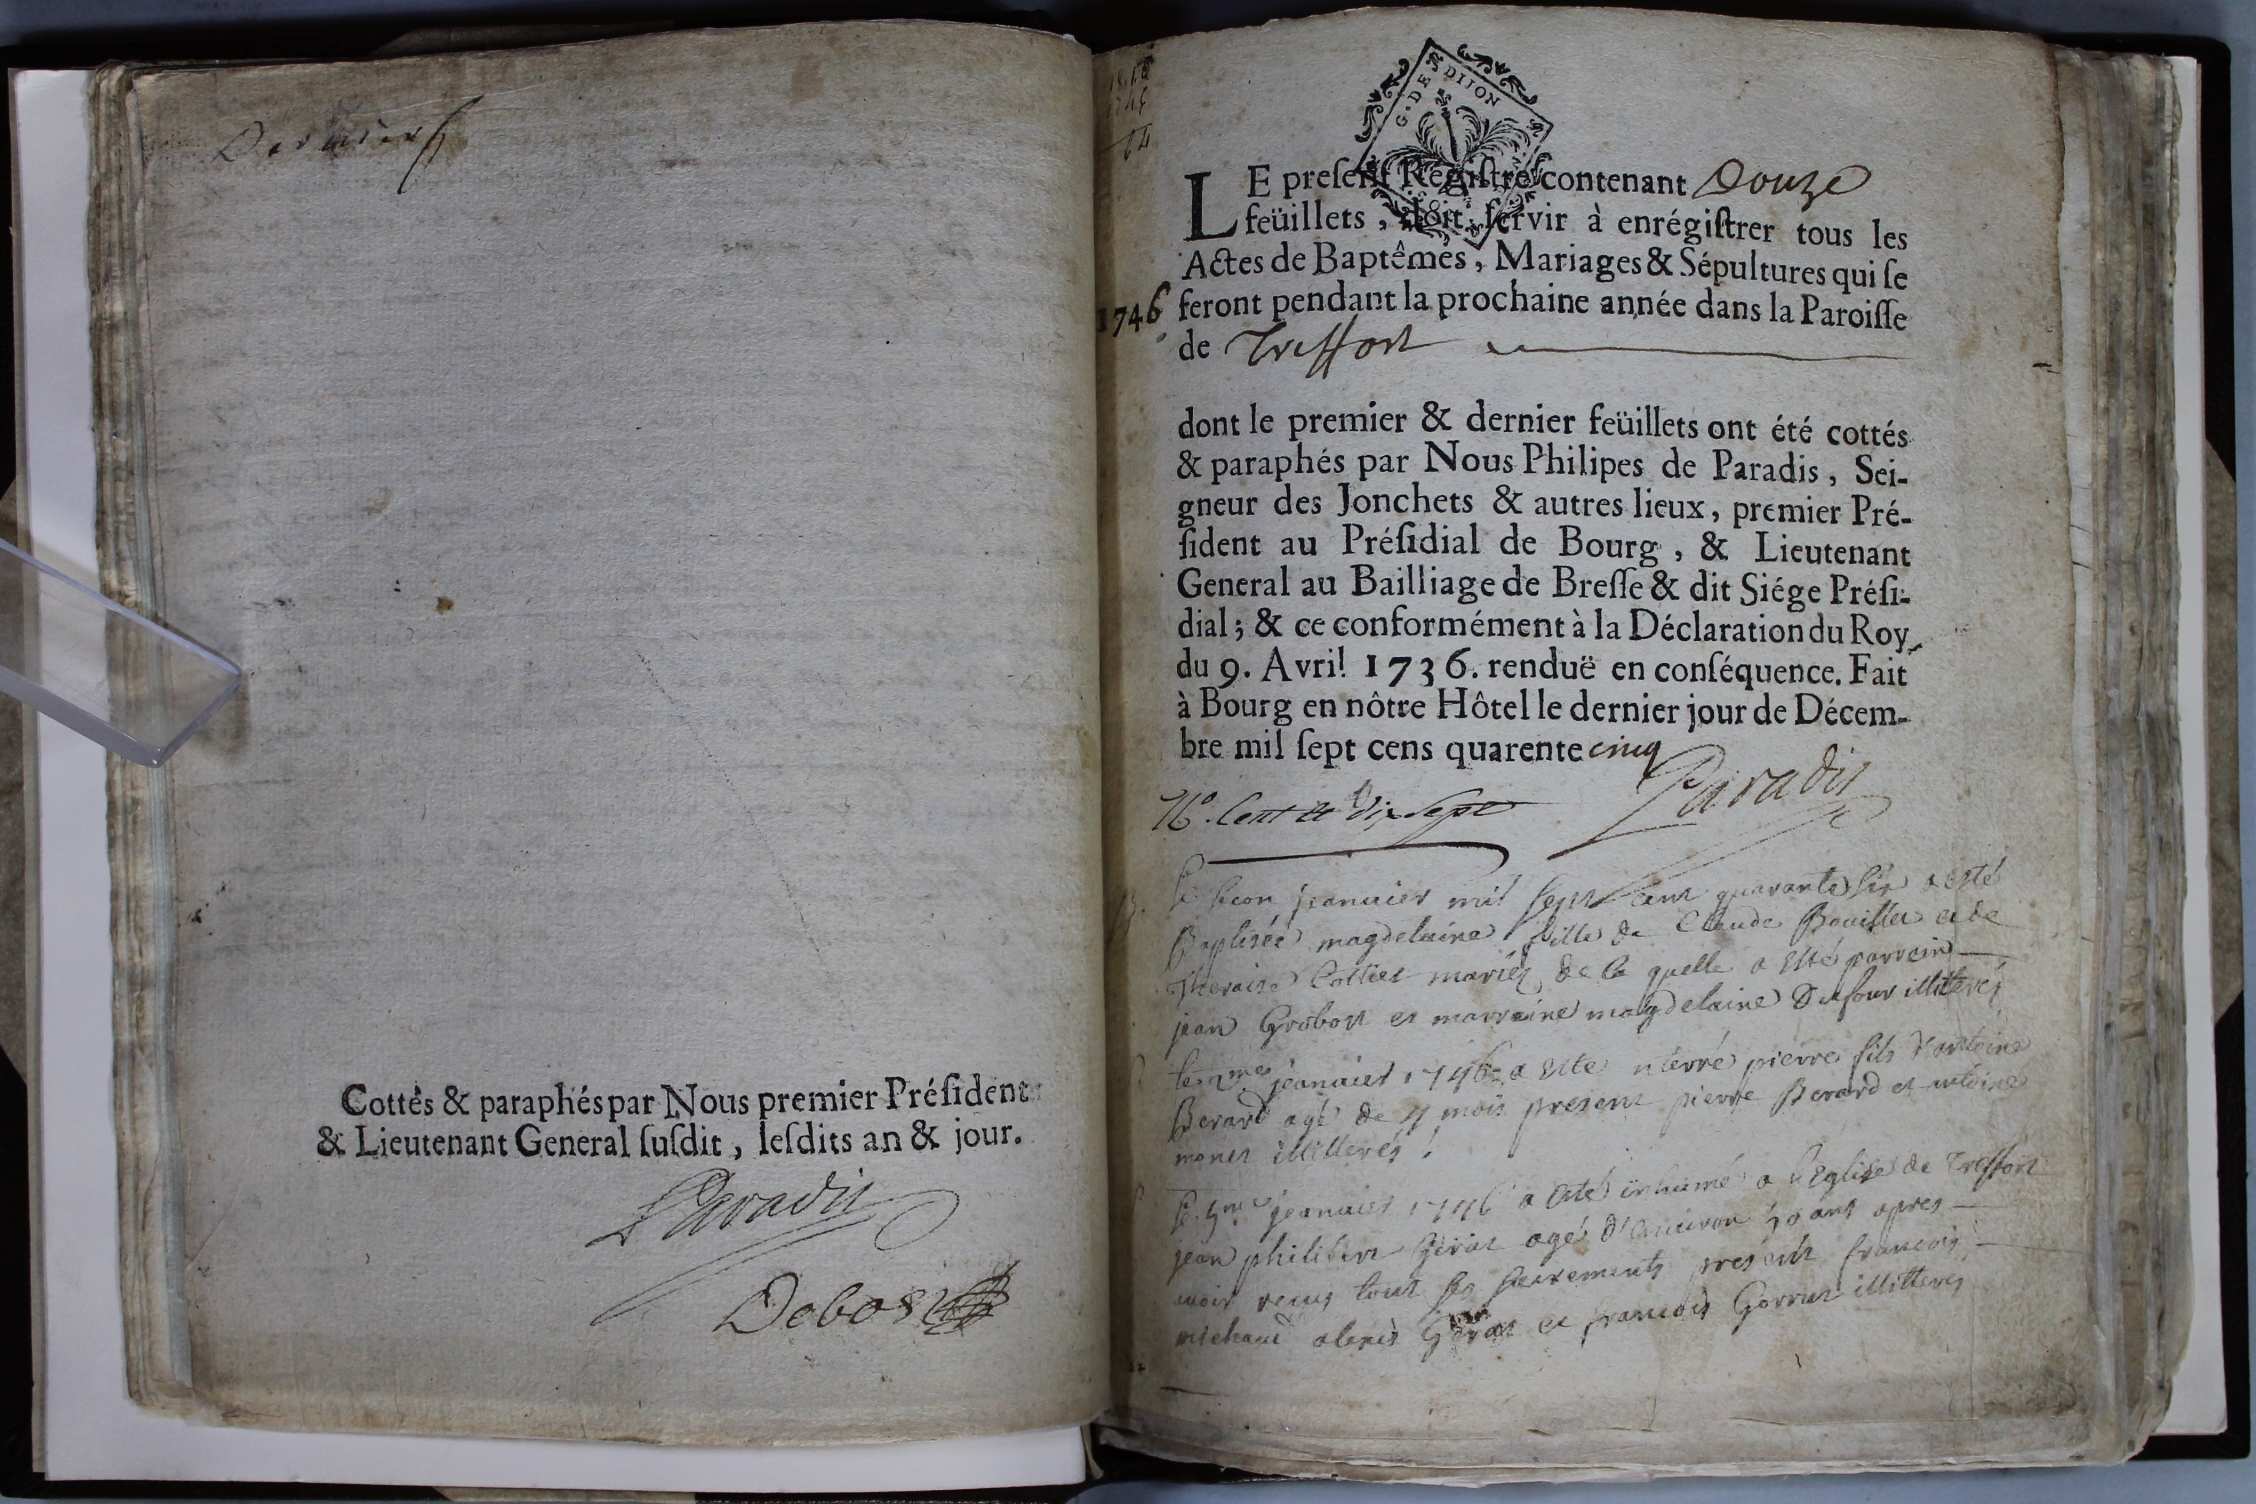 Dernier
Cottés & paraphés par Nous premier Préſident
& Lieutenant General ſuſdit, leſdits an & jour.
Paradis
Debost
G. DE DIJON
LE preſent Regiſtre contenant Douze
feüillets, doit ſervir à enrégiſtrer tous les
Actes de Baptêmes, Mariages & Sépultures qui ſe
1746 feront pendant la prochaine année dans la Paroiſſe
de Treffort
dont le premier & dernier feüillets ont été cottés
& paraphés par Nous Philipes de Paradis, Sei-
gneur des Jonchets & autres lieux, premier Pré-
ſident au Préſidial de Bourg, & Lieutenant
General au Bailliage de Breſſe & dit Siége Préſi-
dial; & ce conformément à la Déclaration du Roy
du 9. Avril 1736. renduë en conſéquence. Fait
à Bourg en nôtre Hôtel le dernier jour de Décem-
bre mil ſept cens quarente cinq
Paradis
No. Cent et dix Sept
jeanvier mil sept cent quarante six a esté
Baptisée magdelaine fille de Claude et de
mariés de la quelle a esté parrein
jean Grobost et marraine magdelaine Dufour illitterés
jeanvier 1746 a esté nterré pierre fils d'antoine
Berard agé de mois present pierre Berard et antoine
monet illitterés
Le jeanvier 1746 a esté inhumé a l'Eglise de Treffort
jean philibert agé d'environ ans apres
avoir receu tout ses sacrements present francois
michaud alexis et francois illitteres